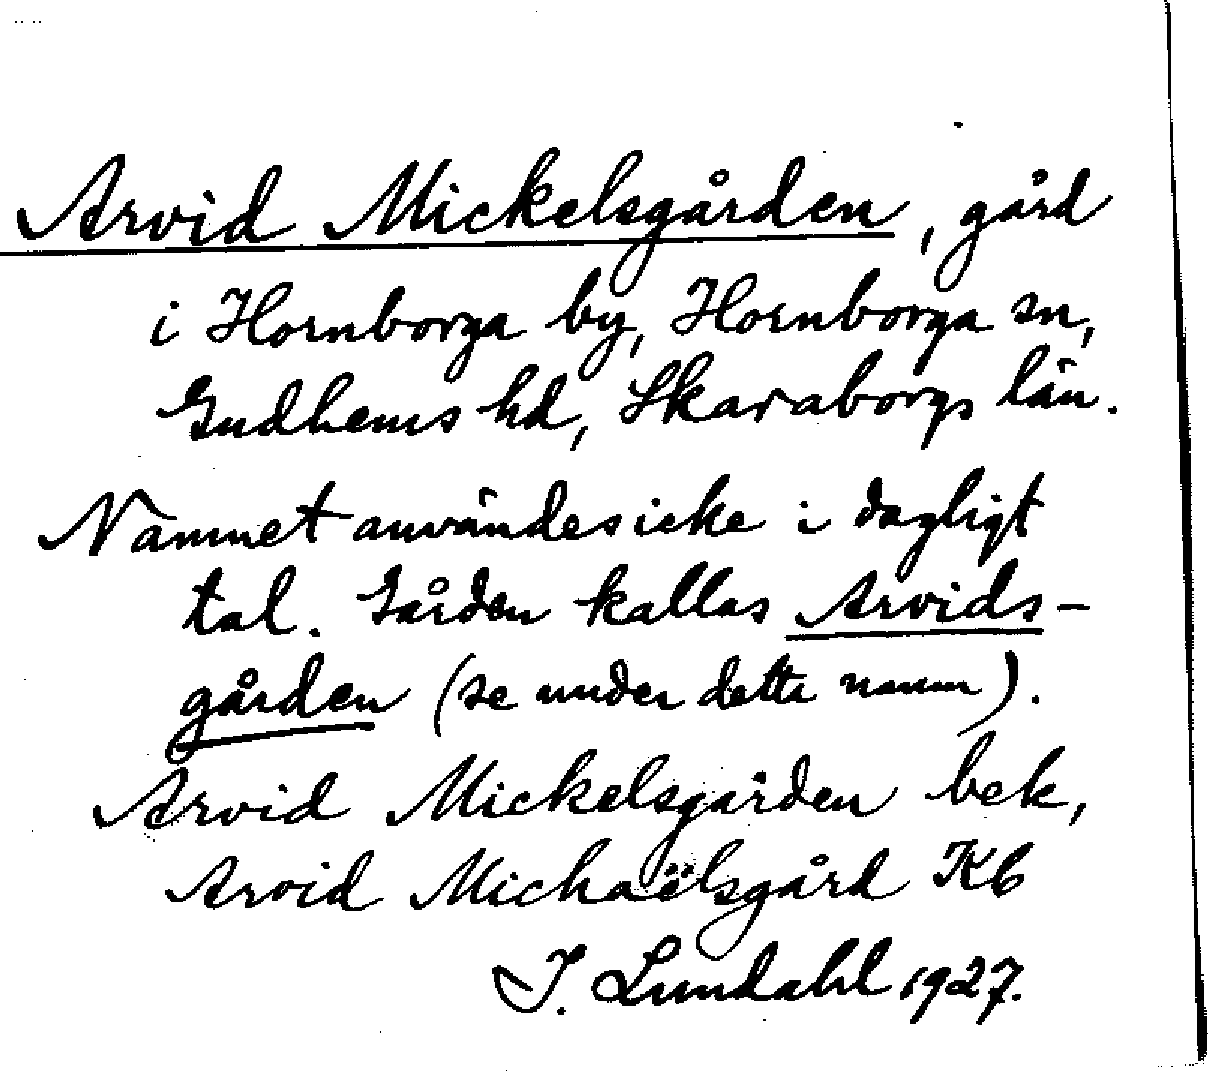 Arvid Mickelsgården, gård
i Hornborga by, Hornborga sn,
Gudhems hd, Skaraborgs län.
Namnet användes icke i dagligt
tal. Gården kallas Arvids-
gården (se under detta namn).
Arvid Mickelsgården bek,
Arvid Michaëlsgård Kb
I. Lundahl 1927.